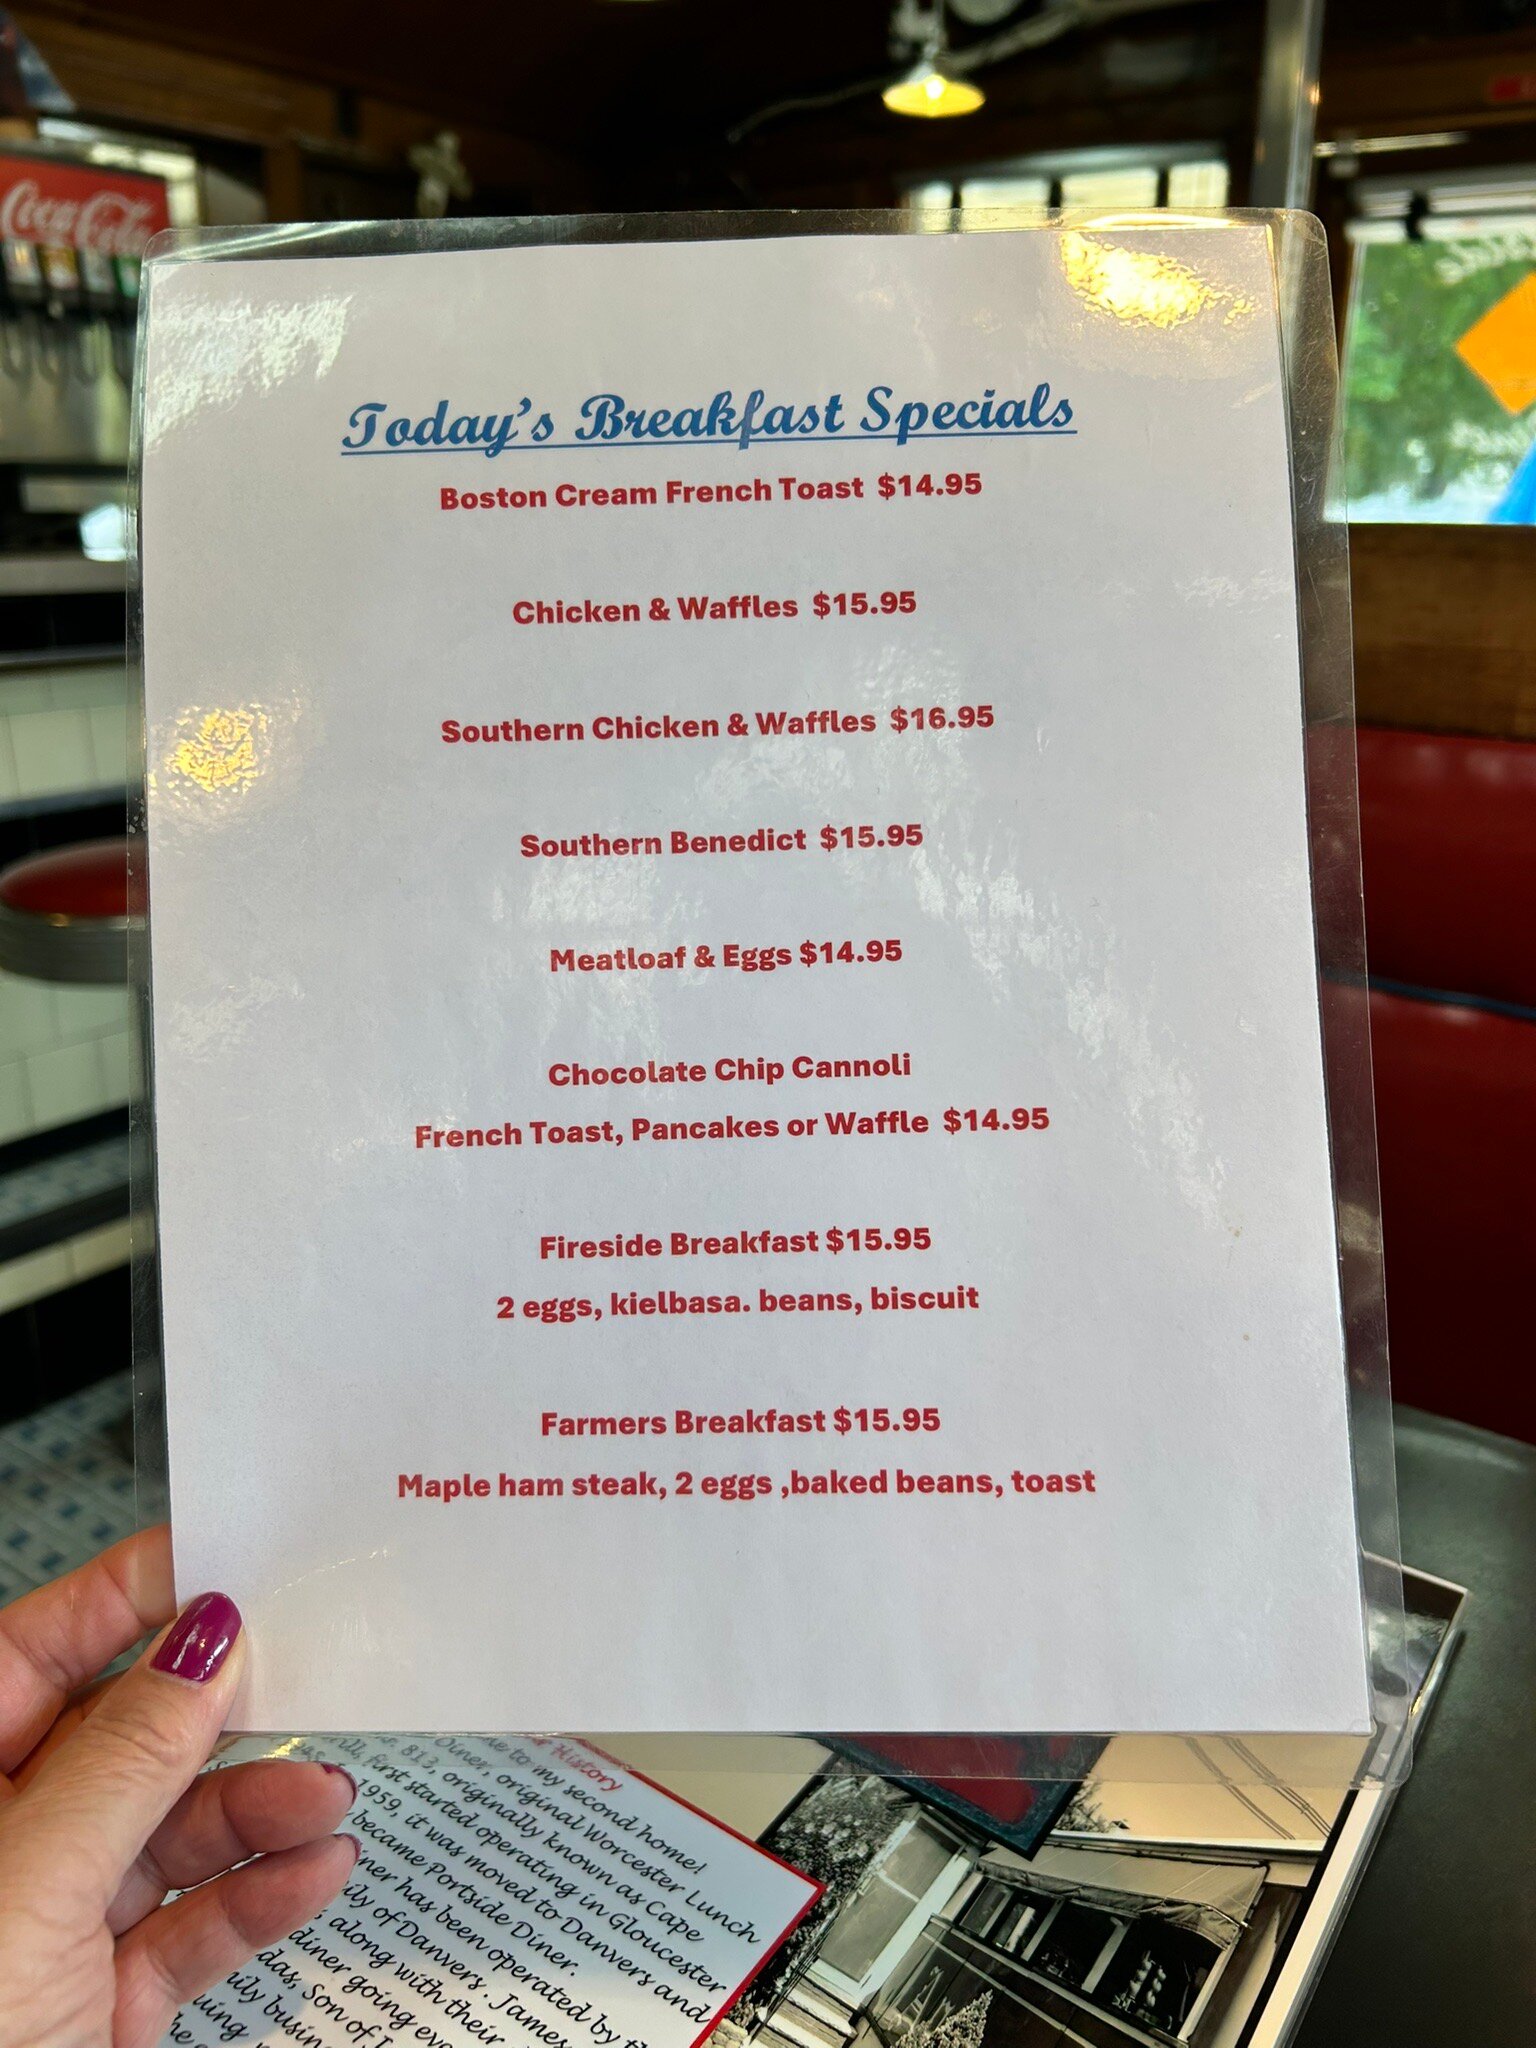 Coca-Cola
Today's Breakfast Specials
Boston Cream French Toast $14.95
Chicken & Waffles $15.95
Southern Chicken & Waffles $16.95
Southern Benedict $15.95
Meatloaf & Eggs $14.95
Chocolate Chip Cannoli
French Toast, Pancakes or Waffle $14.95
Fireside Breakfast $15.95
2 eggs, kielbasa. beans, biscuit
Farmers Breakfast $15.95
Maple ham steak, 2 eggs ,baked beans, toast
History
to my second home!
Diner, original Worcester Lunch
813, originally known as Cape
first started operating in Gloucester
1959, it was moved to Danvers and
became Portside Diner.
has been operated by
of Danvers. James
along with their
diner going
Son of